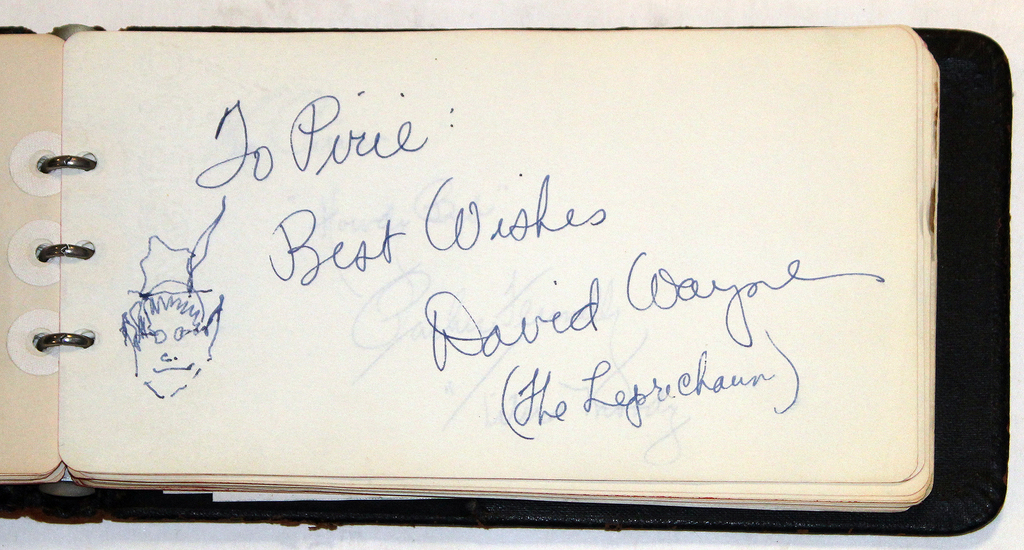 To Pirie:
Best Wishes
David Wayne
(The Leprechaun)